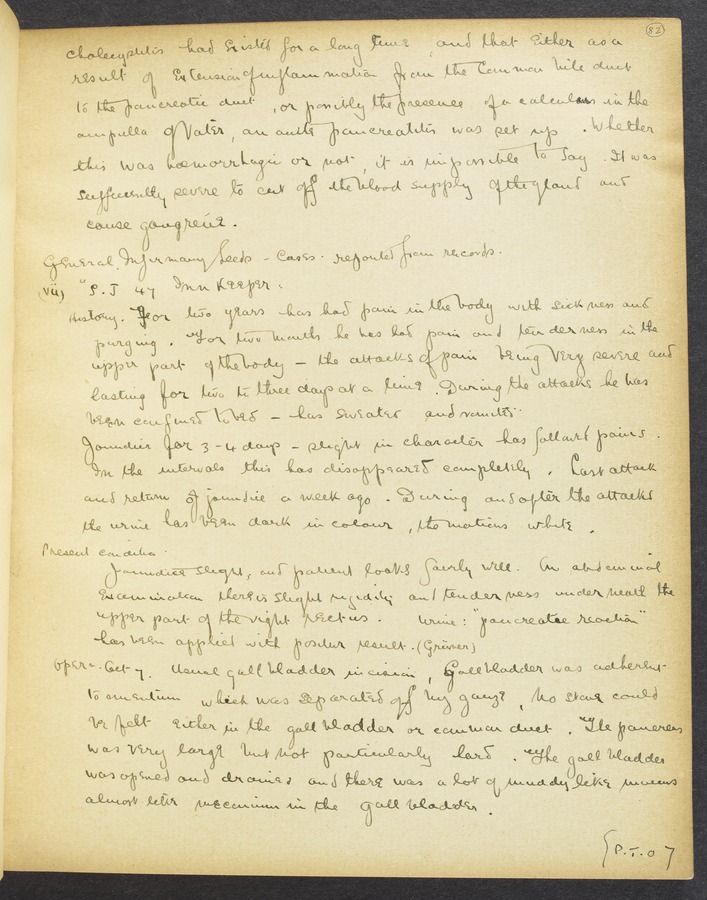 82
cholecystitis had existed for a long time, and that either as a
result of extension of inflammation from the common bile duct
to the pancreatic duct, or possibly the presence of a calculus in the
ampulla of Vater, an acute pancreatitis was set up. Whether
this was hæmorrhagic or not, it is impossible to say. It was
sufficiently severe to cut off the blood supply of the gland and
cause gangrene.
General Infirmary Leeds - Cases. reported from records.
(vii) "S. J 47 Inn Keeper:
History. For two years has had pain in the body with sickness and
purging. For two months he has had pain and tenderness in the
upper part of the body - the attacks of pain being very severe and
lasting for two to three days at a time. During the attacks he has
been confined to bed - has sweated and vomited.
Jaundice for 3-4 days - slight in character has followed pains.
In the intervals this has disappeared completely. Last attack
and return of jaundice a week ago. During and after the attacks
the urine has been dark in colour, the motions white.
Present condition
Jaundice slight, and patient looks fairly well. On abdominal
examination there is slight rigidity and tenderness underneath the
upper part of the right rectus. Urine: "pancreatic reaction"
has been applied with positive result.
oper: Oct 7. Usual gall bladder incision, Gall bladder was adherent
to omentum which was separated off by gauze, no stone could
be felt either in the gall bladder or common duct. The pancreas
was very large but not particularly hard. The gall bladder
was opened and drained and there was a lot of muddy like mucus
almost like meconium in the gall bladder.
P.T.O